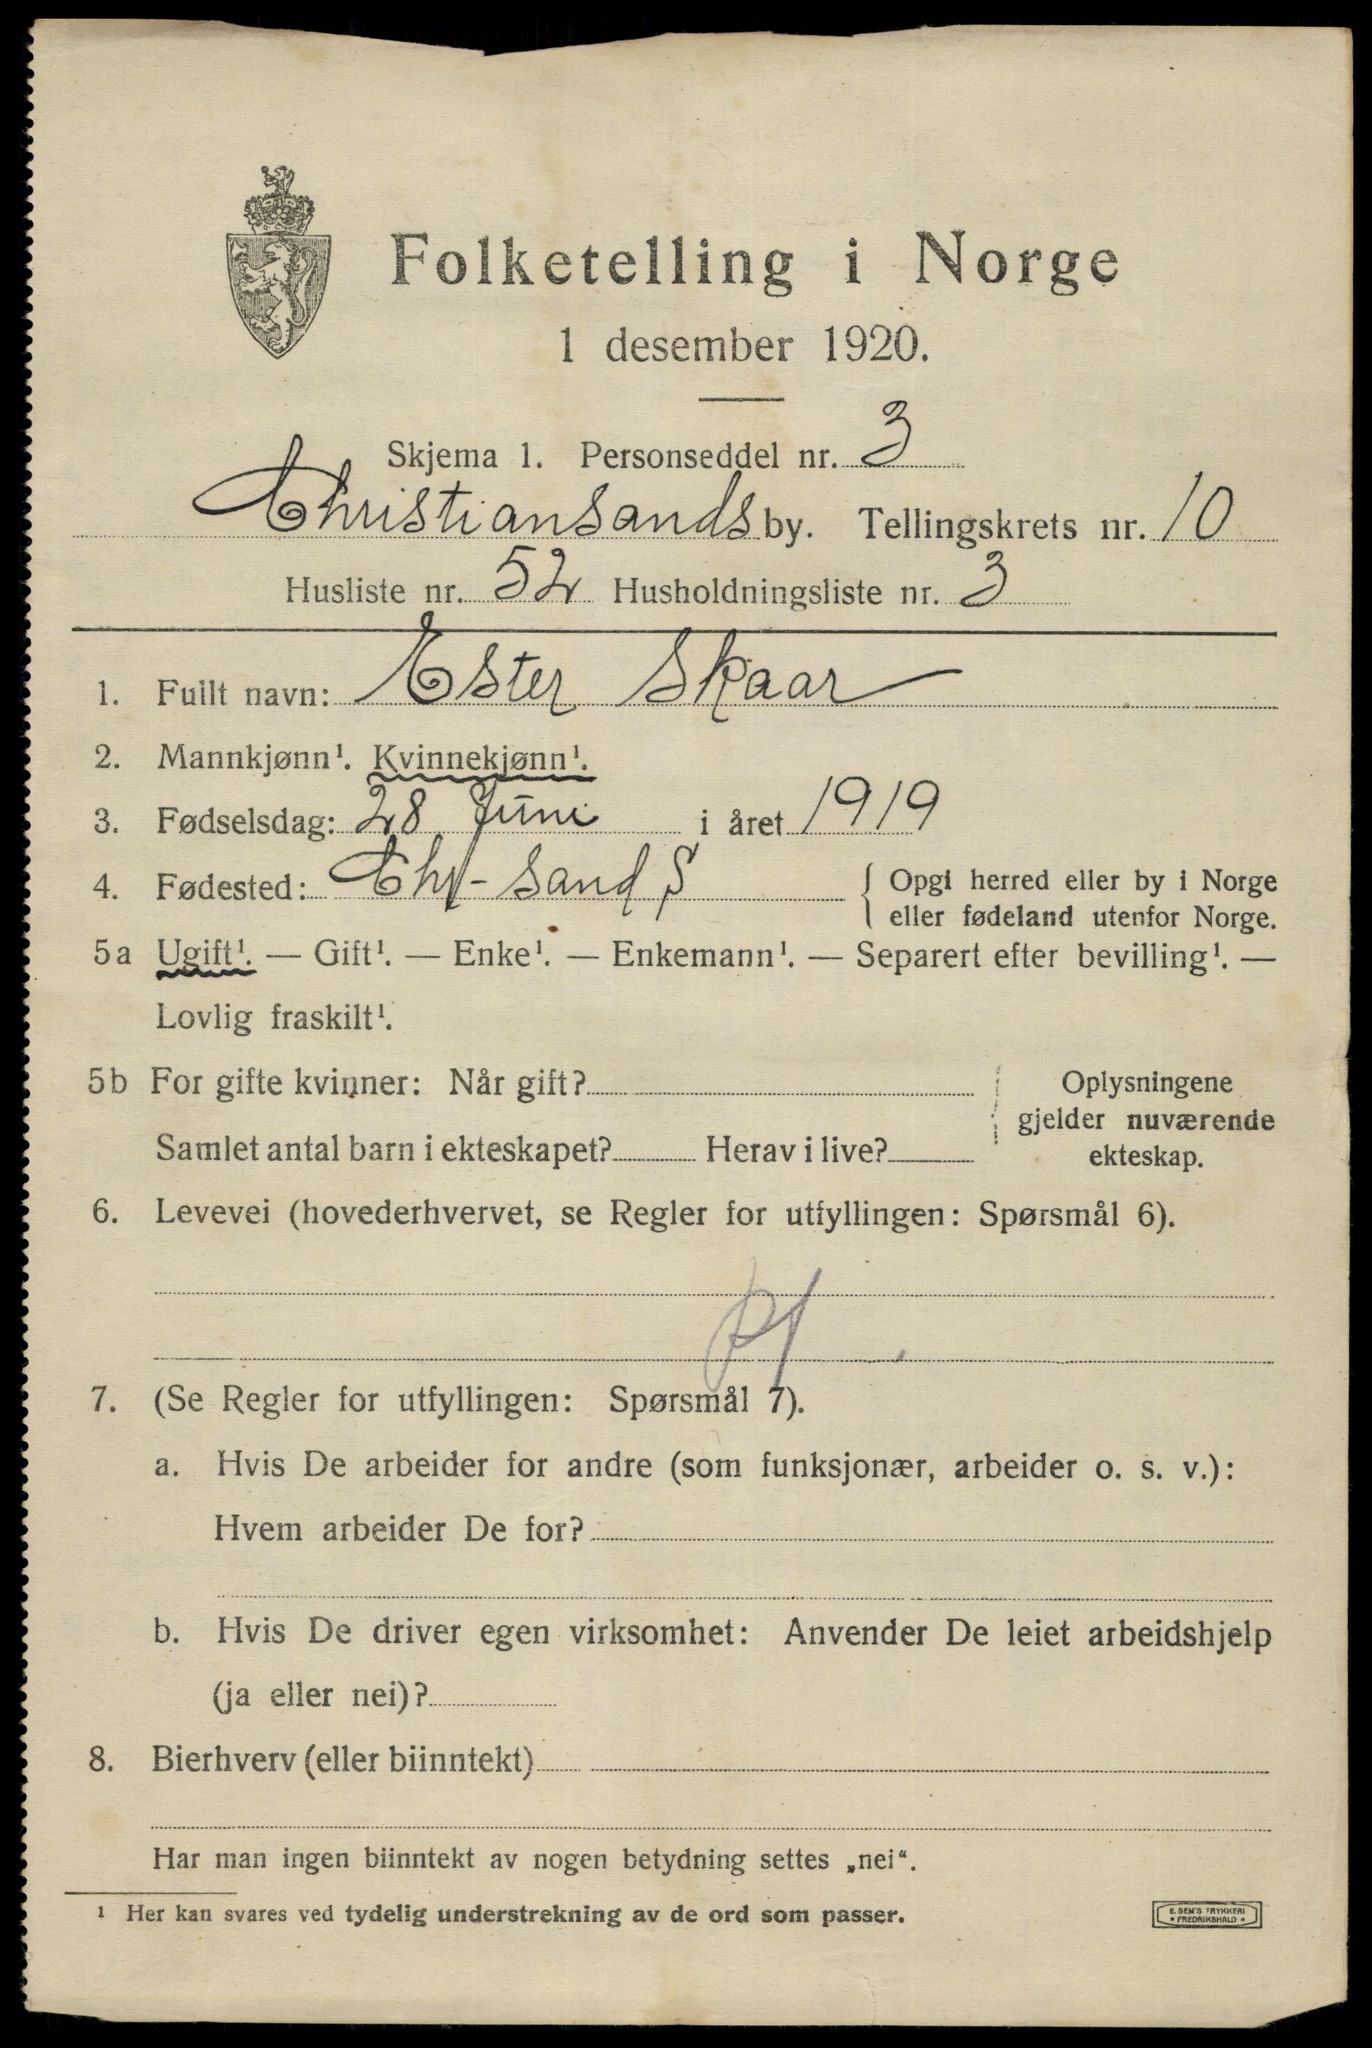 Folketelling i Norge
1 desember 1920.
Skjema 1. Personseddel nr. 3
Christiansands by. Tellingskrets nr. 10
Husliste nr. 52 Husholdningsliste nr. 3
1. Fullt navn: Ester Skaar
2. Mannkjønn¹. Kvinnekjønn¹.
3. Fødselsdag: 28 Juni i året 1919
4. Fødested: Chr-sand S { Opgi herred eller by i Norge
{ eller fødeland utenfor Norge.
5a Ugift¹. — Gift¹. — Enke¹. — Enkemann¹. — Separert efter bevilling¹. —
Lovlig fraskilt¹.
5b For gifte kvinner: Når gift? Oplysningene
gjelder nuværende
Samlet antal barn i ekteskapet? Herav i live? ekteskap.
6. Levevei (hovederhvervet, se Regler for utfyllingen: Spørsmål 6).
7. (Se Regler for utfyllingen: Spørsmål 7).
a. Hvis De arbeider for andre (som funksjonær, arbeider o. s. v.):
Hvem arbeider De for?
b. Hvis De driver egen virksomhet: Anvender De leiet arbeidshjelp
(ja eller nei)?
8. Bierhverv (eller biinntekt)
Har man ingen biinntekt av nogen betydning settes „nei“.
¹ Her kan svares ved tydelig understrekning av de ord som passer.
E. SEM'S TRYKKERI
* FREDRIKSHALD *